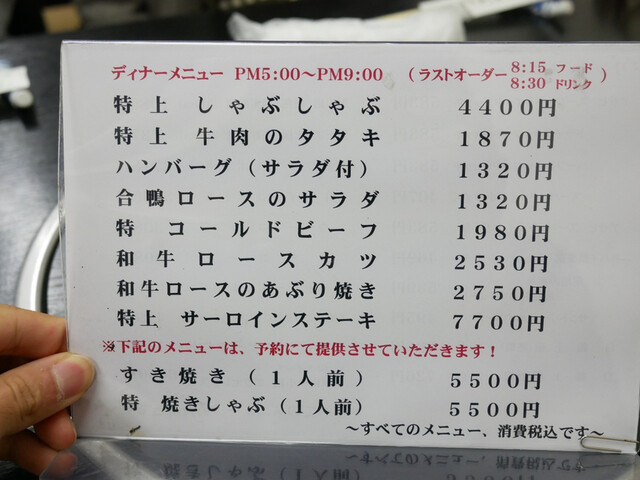 ディナーメニュー PM5:00〜PM9:00 (ラストオーダー 8:15 フード 8:30 ドリンク)
特上 しゃぶしゃぶ 4400円
特上 牛肉のタタキ 1870円
ハンバーグ(サラダ付) 1320円
合鴨ロースのサラダ 1320円
特 コールドビーフ 1980円
和牛ロースカツ 2530円
和牛ロースのあぶり焼き 2750円
特上 サーロインステーキ 7700円
※下記のメニューは、予約にて提供させていただきます!
すき焼き(1人前) 5500円
特 焼きしゃぶ(1人前) 5500円
〜すべてのメニュー、消費税込です〜